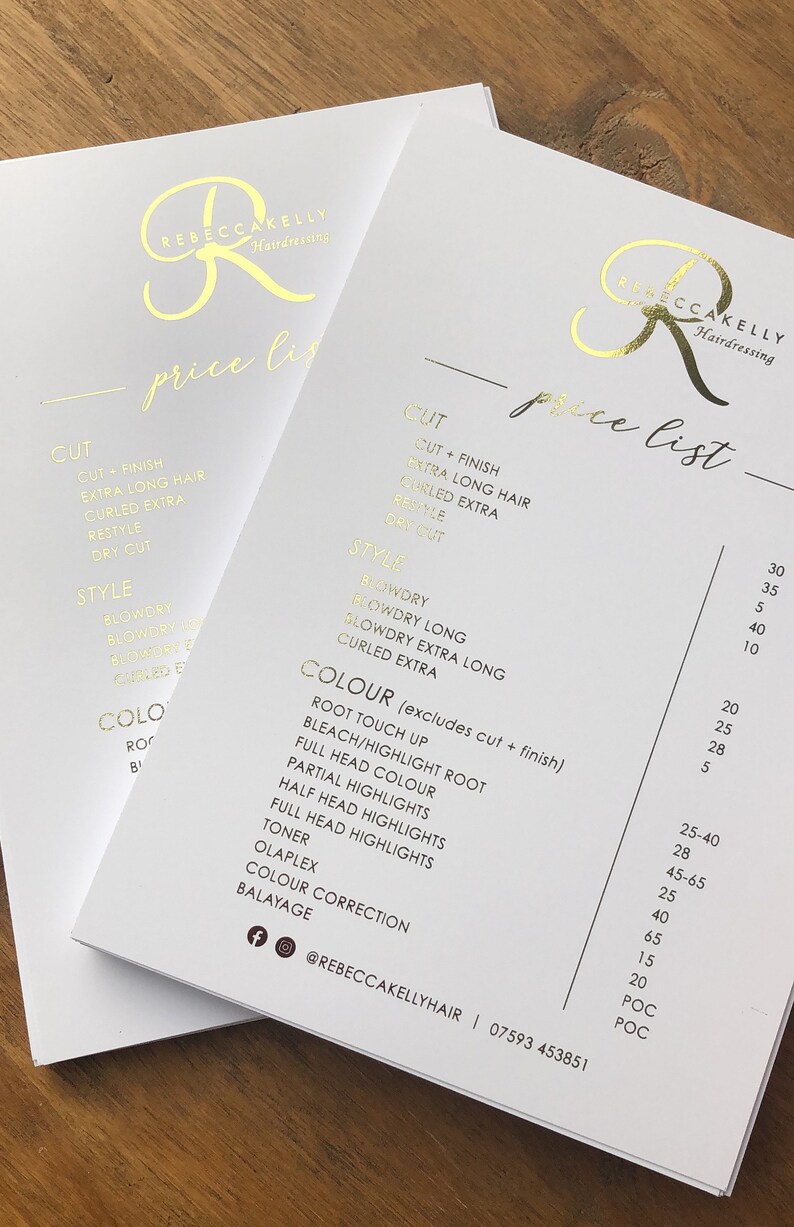 R
REBECCAKELLY
Hairdressing
price lis
CUT
CUT + FINISH
EXTRA LONG HAIR
CURLED EXTRA
RESTYLE
DRY CUT
STYLE
BLOWDRY
BLOWDRY LO
BLOWDRY E
CURLED E
COLOU
ROO
BL
R
REBECCAKELLY
Hairdressing
price list
CUT
CUT + FINISH 30
EXTRA LONG HAIR 35
CURLED EXTRA 5
RESTYLE 40
DRY CUT 10
STYLE
BLOWDRY 20
BLOWDRY LONG 25
BLOWDRY EXTRA LONG 28
CURLED EXTRA 5
COLOUR (excludes cut + finish)
ROOT TOUCH UP 25-40
BLEACH/HIGHLIGHT ROOT 28
FULL HEAD COLOUR 45-65
PARTIAL HIGHLIGHTS 25
HALF HEAD HIGHLIGHTS 40
FULL HEAD HIGHLIGHTS 65
TONER 15
OLAPLEX 20
COLOUR CORRECTION POC
BALAYAGE POC
@REBECCAKELLYHAIR | 07593 453851